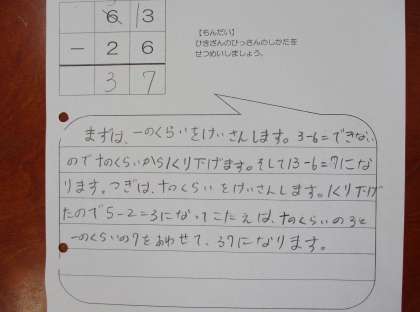 6 13
【もんだい】
ひきざんのひっさんのしかたを
せつめいしましょう。
− 2 6
3 7
まずは、一のくらいをけいさんします。3-6=できない
ので十のくらいから1くり下げます。そして13-6=7にな
ります。つぎは、十のくらいをけいさんします。1くり下げ
たので5-2=3になってこたえは、十のくらいの3と
一のくらいの7をあわせて、37になります。